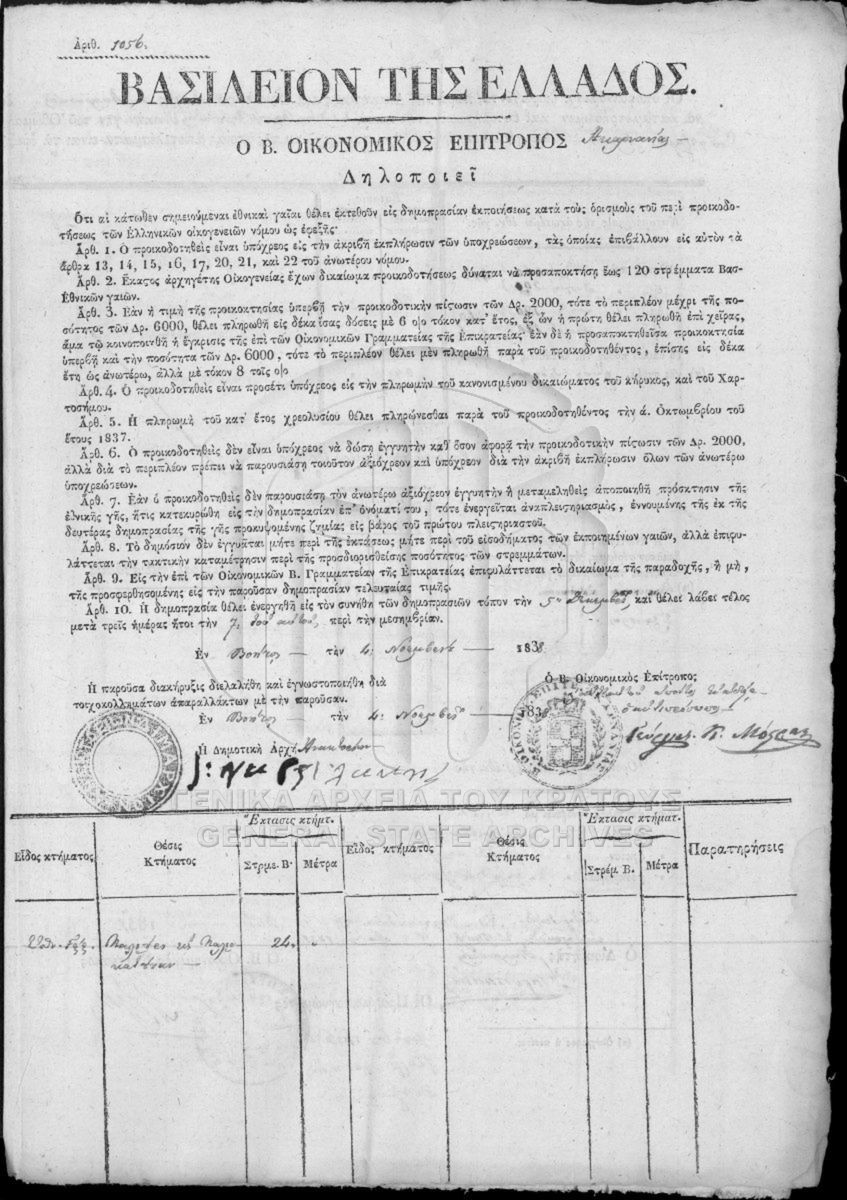 Ἀριθ. 1056.
ΒΑΣΙΛΕΙΟΝ ΤΗΣ ΕΛΛΑΔΟΣ.
Ο Β. ΟΙΚΟΝΟΜΙΚΟΣ ΕΠΙΤΡΟΠΟΣ Ἀκαρνανίας
Δηλοποιεῖ
Ὅτι αἱ κάτωθεν σημειούμεναι ἐθνικαὶ γαῖαι θέλει ἐκτεθοῦν εἰς δημοπρασίαν ἐκποιήσεως κατὰ τοὺς ὁρισμοὺς τοῦ περὶ προικοδο-
τήσεως τῶν Ἑλληνικῶν οἰκογενειῶν νόμου ὡς ἐφεξῆς·
Ἀρθ. 1. Ὁ προικοδοτηθεὶς εἶναι ὑπόχρεος εἰς τὴν ἀκριβῆ ἐκπλήρωσιν τῶν ὑποχρεώσεων, τὰς ὁποίας ἐπιβάλλουν εἰς αὐτὸν τὰ
ἄρθρα 13, 14, 15, 16, 17, 20, 21, καὶ 22 τοῦ ἀνωτέρω νόμου.
Ἀρθ. 2. Ἕκαστος ἀρχηγέτης Οἰκογενείας ἔχων δικαίωμα προικοδοτήσεως δύναται νὰ προσαποκτήσῃ ἕως 120 στρέμματα Βασ-
Ἐθνικῶν γαιῶν.
Ἀρθ. 3. Ἐὰν ἡ τιμὴ τῆς προικοκτησίας ὑπερβῇ τὴν προικοδοτικὴν πίστωσιν τῶν Δρ. 2000, τότε τὸ περιπλέον μέχρι τῆς πο-
σότητος τῶν Δρ. 6000, θέλει πληρωθῇ εἰς δέκα ἴσας δόσεις μὲ 6 ο)ο τόκον κατ' ἔτος, ἐξ ὧν ἡ πρώτη θέλει πληρωθῆ ἐπὶ χεῖρας,
ἅμα τῷ κοινοποιηθῇ ἡ ἔγκρισις τῆς ἐπὶ τῶν Οἰκονομικῶν Γραμματείας τῆς Ἐπικρατείας· ἐὰν δὲ ἡ προσαποκτηθεῖσα προικοκτησία
ὑπερβῇ καὶ τὴν ποσότητα τῶν Δρ. 6000, τότε τὸ περιπλέον θέλει μὲν πληρωθῆ παρὰ τοῦ προικοδοτηθέντος, ἐπίσης εἰς δέκα
ἔτη ὡς ἀνωτέρω, ἀλλὰ μὲ τόκον 8 τοῖς ο)ο
Ἀρθ. 4. Ὁ προικοδοτηθεὶς εἶναι προσέτι ὑπόχρεος εἰς τὴν πληρωμὴν τοῦ κανονισμένου δικαιώματος τοῦ κήρυκος, καὶ τοῦ Χαρ-
τοσήμου.
Ἀρθ. 5. Ἡ πληρωμὴ τοῦ κατ' ἔτος χρεολυσίου θέλει πληρώνεσθαι παρὰ τοῦ προικοδοτηθέντος τὴν ά. Ὀκτωμβρίου τοῦ
ἔτους 1837.
Ἀρθ. 6. Ὁ προικοδοτηθεὶς δὲν εἶναι ὑπόχρεος νὰ δώσῃ ἐγγυητὴν καθ' ὅσον ἀφορᾷ τὴν προικοδοτικὴν πίστωσιν τῶν Δρ. 2000,
ἀλλὰ διὰ τὸ περιπλέον πρέπει νὰ παρουσιάσῃ τοιοῦτον ἀξιόχρεον καὶ ὑπόχρεον διὰ τὴν ἀκριβῆ ἐκπλήρωσιν ὅλων τῶν ἀνωτέρω
ὑποχρεώσεων.
Ἀρθ. 7. Ἐὰν ὁ προικοδοτηθεὶς δὲν παρουσιάσῃ τὸν ἀνωτέρω ἀξιόχρεον ἐγγυητὴν ἢ μεταμεληθεὶς ἀποποιηθῇ πρόσκτησιν τῆς
ἐθνικῆς γῆς, ἥτις κατεκυρώθη εἰς τὴν δημοπρασίαν ἐπ' ὀνόματί του, τότε ἐνεργεῖται ἀναπλειστηριασμὸς, ἐννουμένης τῆς ἐκ τῆς
δευτέρας δημοπρασίας τῆς γῆς προκυψομένης ζημίας εἰς βάρος τοῦ πρώτου πλειστηριαστοῦ.
Ἀρθ. 8. Τὸ δημόσιον δὲν ἐγγυᾶται μήτε περὶ τῆς ἐκτάσεως μήτε περὶ τοῦ εἰσοδήματος τῶν ἐκποιημένων γαιῶν, ἀλλὰ ἐπιφυ-
λάττεται τὴν τακτικὴν καταμέτρησιν περὶ τῆς προσδιορισθείσης ποσότητος τῶν στρεμμάτων.
Ἀρθ. 9. Εἰς τὴν ἐπὶ τῶν Οἰκονομικῶν Β. Γραμματείαν τῆς Ἐπικρατείας ἐπιφυλάττεται τὸ δικαίωμα τῆς παραδοχῆς, ἢ μὴ,
τῆς προσφερθησομένης εἰς τὴν παροῦσαν δημοπρασίαν τελευταίας τιμῆς.
Ἀρθ. 10. Ἡ δημοπρασία θέλει ἐνεργηθῆ εἰς τὸν συνήθη τῶν δημοπρασιῶν τόπον τὴν 5 Δεκεμβρ καὶ θέλει λάβει τέλος
μετὰ τρεῖς ἡμέρας ἤτοι τὴν 7 τοῦ αὐτοῦ, περὶ τὴν μεσημβρίαν.
Ἐν Βονίτσῃ τὴν 4 Νοεμβρίου 1838
Ὁ Β. Οἰκονομικὸς Ἐπίτροπος
Ἡ παροῦσα διακήρυξις διελαλήθη καὶ ἐγνωστοποιήθη διὰ
τοιχοκολλημάτων ἀπαραλλάκτων μὲ τὴν παροῦσαν.
Ἐν Βονίτσῃ τὴν 4 Νοεμβρ 1838
Ἡ Δημοτικὴ Ἀρχὴ Ἀνακτορίων
ΓΕΝΙΚΑ ΑΡΧΕΙΑ ΤΟΥ ΚΡΑΤΟΥΣ
GENERAL STATE ARCHIVES
Εἶδος κτήματος
Θέσις Κτήματος
Ἔκτασις κτήμτ.
Στρμε. Β.
Μέτρα
Εἶδος κτήματος
Θέσις Κτήματος
Ἔκτασις κτήματ.
Στρέμ. Β.
Μέτρα
Παρατηρήσεις
24.